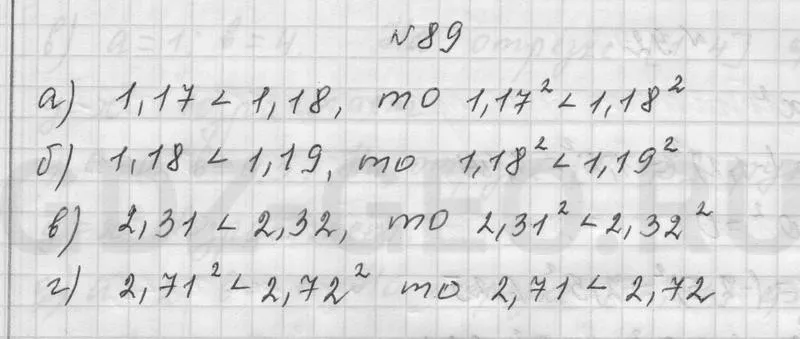 №89
а) 1,17 < 1,18, то 1,17² < 1,18²
б) 1,18 < 1,19, то 1,18² < 1,19²
в) 2,31 < 2,32, то 2,31² < 2,32²
г) 2,71² < 2,72² то 2,71 < 2,72